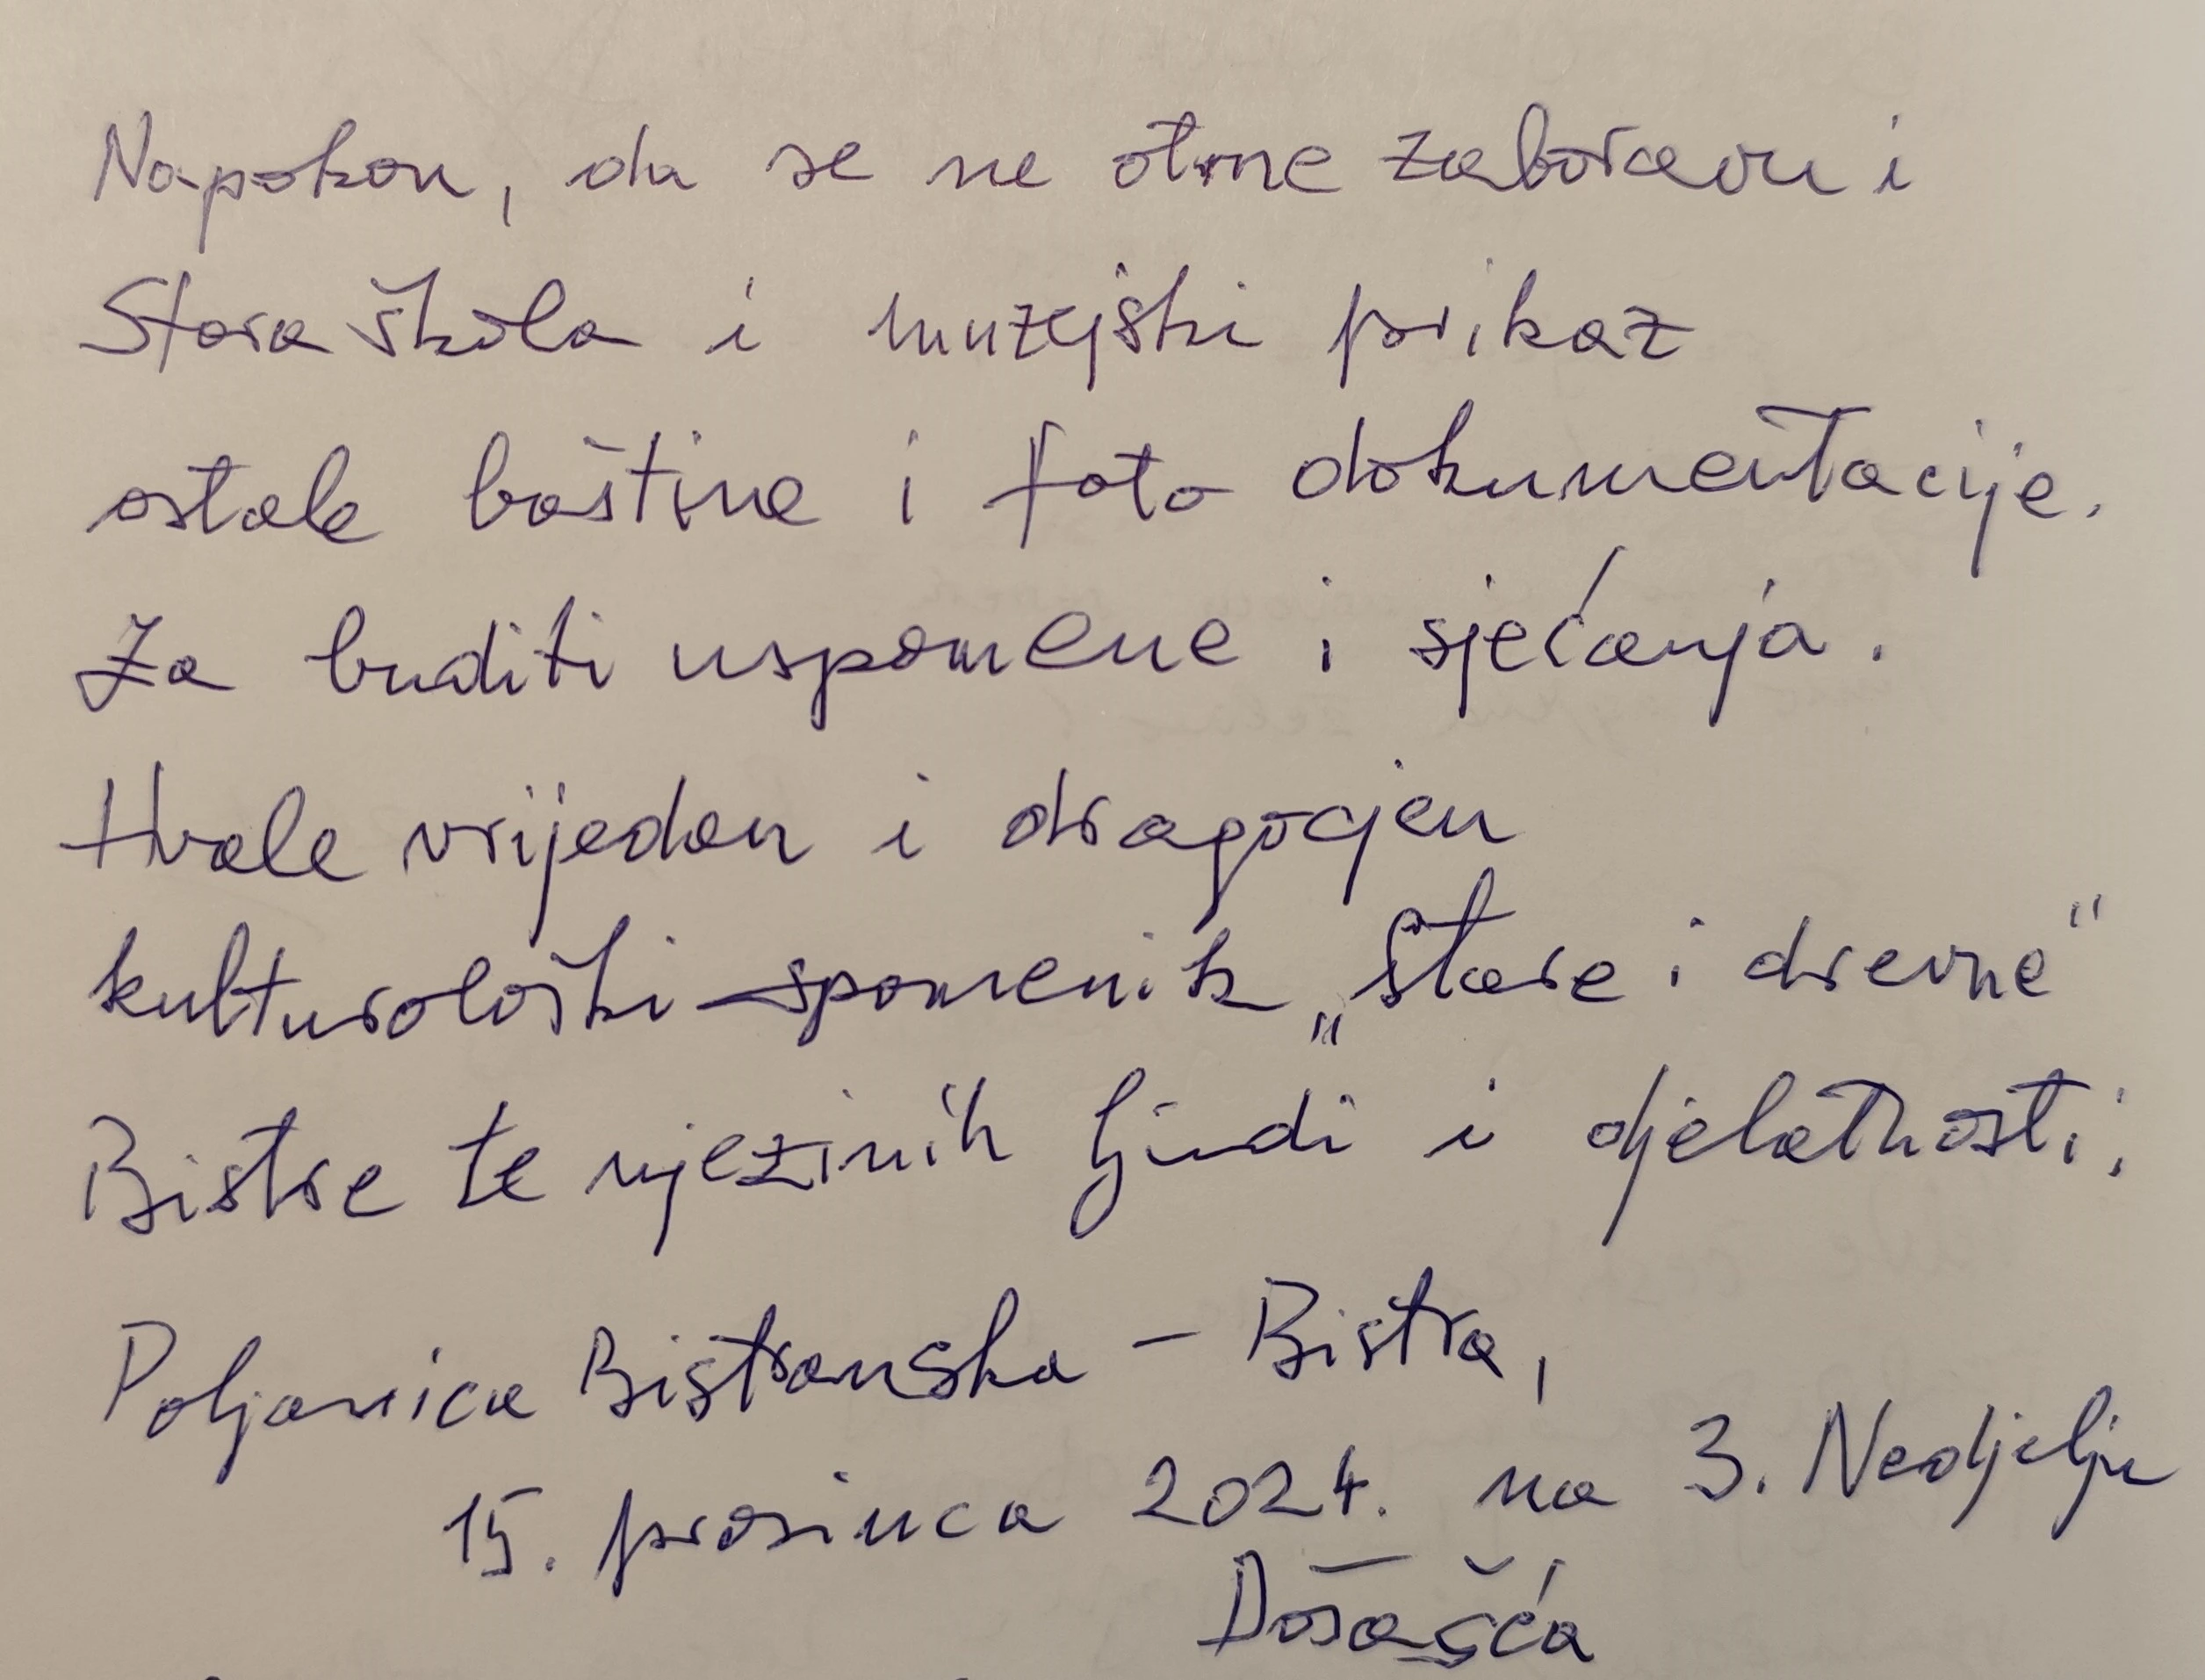 Napokon, da se ne otme zaboravu i
Stara škola i muzejski prikaz
ostale baštine i foto dokumentacije.
Za buditi uspomene i sjećanja.
Hvale vrijedan i dragocjen
kulturološki spomenik „stare i drevne"
Bistre te njezinih ljudi i djelatnosti;
Poljanica Bistranska - Bistra,
15. prosinca 2024. na 3. Nedjelju
Došašća